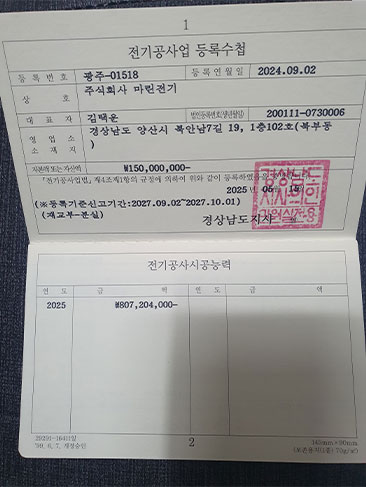 1
전기공사업 등록수첩
등록번호 광주-01518 등록연월일 2024.09.02
상호 주식회사 마린전기
대표자 김택운 법인등록번호(생년월일) 200111-0730006
영업소 소재지 경상남도 양산시 북안남7길 19, 1층102호(북부동)
자본금 또는 자산액 ₩150,000,000-
「전기공사업법」 제4조제1항의 규정에 의하여 위와 같이 등록하였음을
2025 년 05 월 15
(※등록기준신고기간:2027.09.02~2027.10.01)
(재교부-분실) 경상남도지사
전기공사시공능력
연도 금액 연도 금액
2025 ₩807,204,000-
'99. 6. 7. 개정승인
2